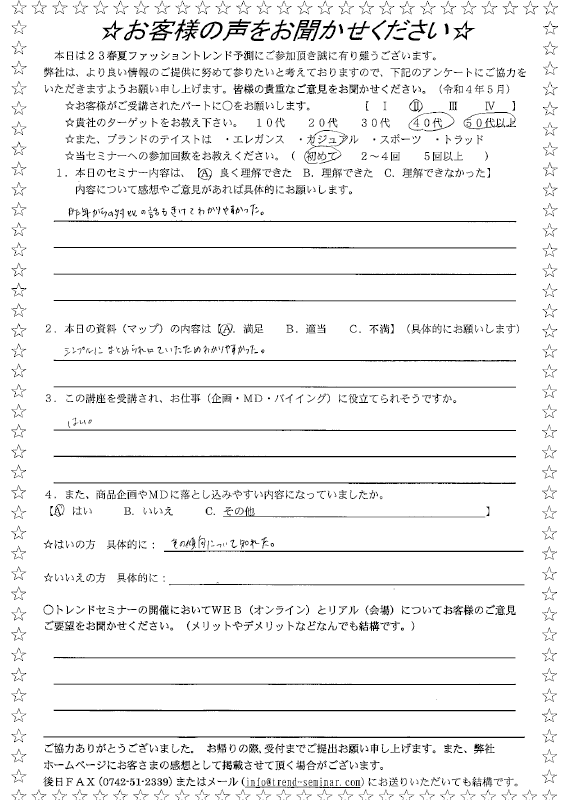 ☆お客様の声をお聞かせください☆
本日は２３春夏ファッショントレンド予測にご参加頂き誠に有り難うございます。
弊社は、より良い情報のご提供に努めて参りたいと考えておりますので、下記のアンケートにご協力を
いただきますようお願い申し上げます。皆様の貴重なご意見をお聞かせください。（令和４年５月）
☆お客様がご受講されたパートに○をお願いします。 【 Ⅰ Ⅱ Ⅲ Ⅳ 】
☆貴社のターゲットをお教え下さい。 １０代 ２０代 ３０代 ４０代 ５０代以上
☆また、ブランドのテイストは ・エレガンス ・カジュアル ・スポーツ ・トラッド
☆当セミナーへの参加回数をお教えください。（ 初めて ２～４回 ５回以上 ）
１．本日のセミナー内容は、【A. 良く理解できた B. 理解できた C. 理解できなかった】
内容について感想やご意見があれば具体的にお願いします。
昨年からの対比の話もきけてわかりやすかった。
２．本日の資料（マップ）の内容は【A. 満足 B. 適当 C. 不満】（具体的にお願いします）
シンプルにまとめられていたためわかりやすかった。
３．この講座を受講され、お仕事（企画・ＭＤ・バイイング）に役立てられそうですか。
はい。
４．また、商品企画やＭＤに落とし込みやすい内容になっていましたか。
【A. はい B. いいえ C. その他 】
☆はいの方 具体的に： その傾向について知れた。
☆いいえの方 具体的に：
○トレンドセミナーの開催においてＷＥＢ（オンライン）とリアル（会場）についてお客様のご意見
ご要望をお聞かせください。（メリットやデメリットなどなんでも結構です。）
ご協力ありがとうございました。 お帰りの際、受付までご提出お願い申し上げます。また、弊社
ホームページにお客さまの感想として掲載させて頂く場合がございます。
後日ＦＡＸ（0742-51-2339）またはメール（info@trend-seminar.com）にお送りいただいても結構です。